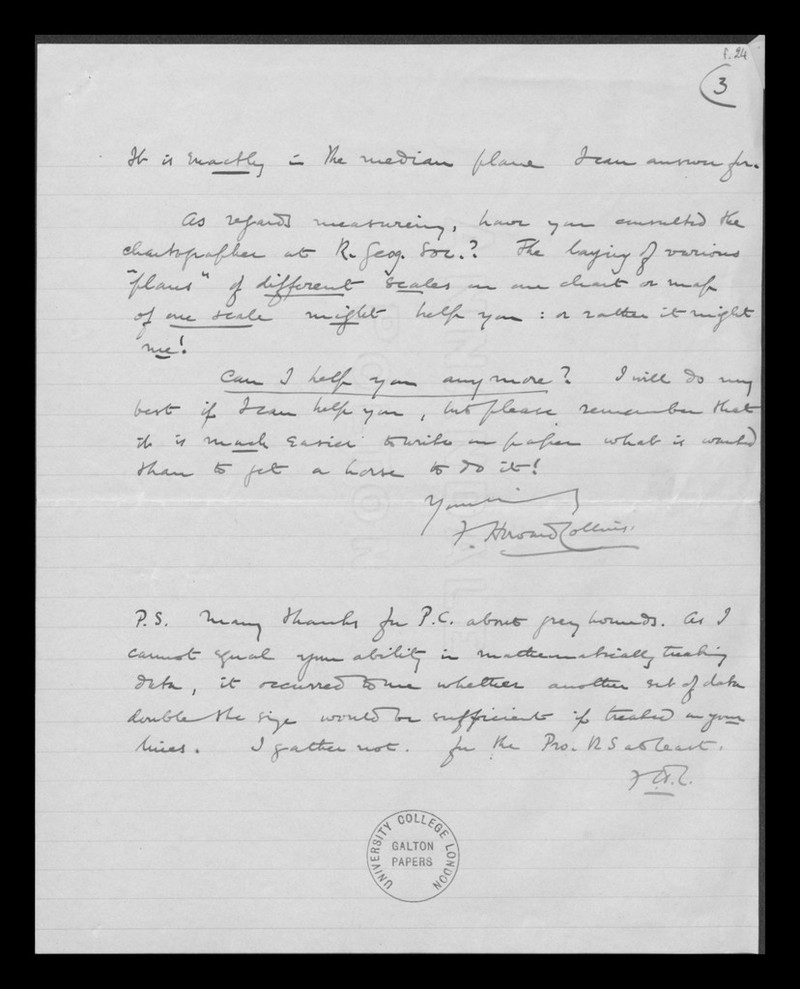 f. 24
3
It is exactly in the median plane I can answer for.
As regards measureing, have you consulted the
chartographer at R. Geog. Soc.? The laying of various
"plans" of different scales on one chart or map
of one scale might help you : or rather it might
me!
Can I help you any more? I will do my
best if I can help you, but please remember that
it is much easier to write on paper what is wanted
than to get a horse to do it!
Yours
F. Howard Collins.
P.S. Many thanks for P.C. about greyhounds. As I
cannot equal your ability in mathematically treating
data, it occurred to me whether another set of data
double the size would be sufficient if treated on your
lines. I gather not. for the Pro. R S at least.
F.H.C.
UNIVERSITY COLLEGE LONDON
GALTON
PAPERS